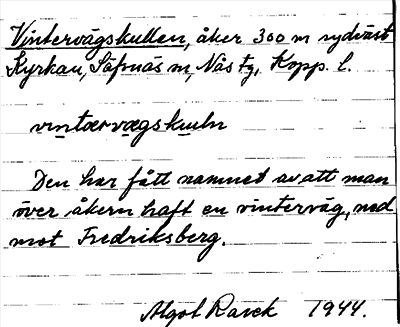 Vintervägskullen, åker 300 m sydväst
Kyrkan, Säfsnäs sn, Näs tg, Kopp. l.
vintærvægskuuln
Den har fått namnet av att man
över åkern haft en vinterväg, ned
mot Fredriksberg.
Algot Rarek 1944.